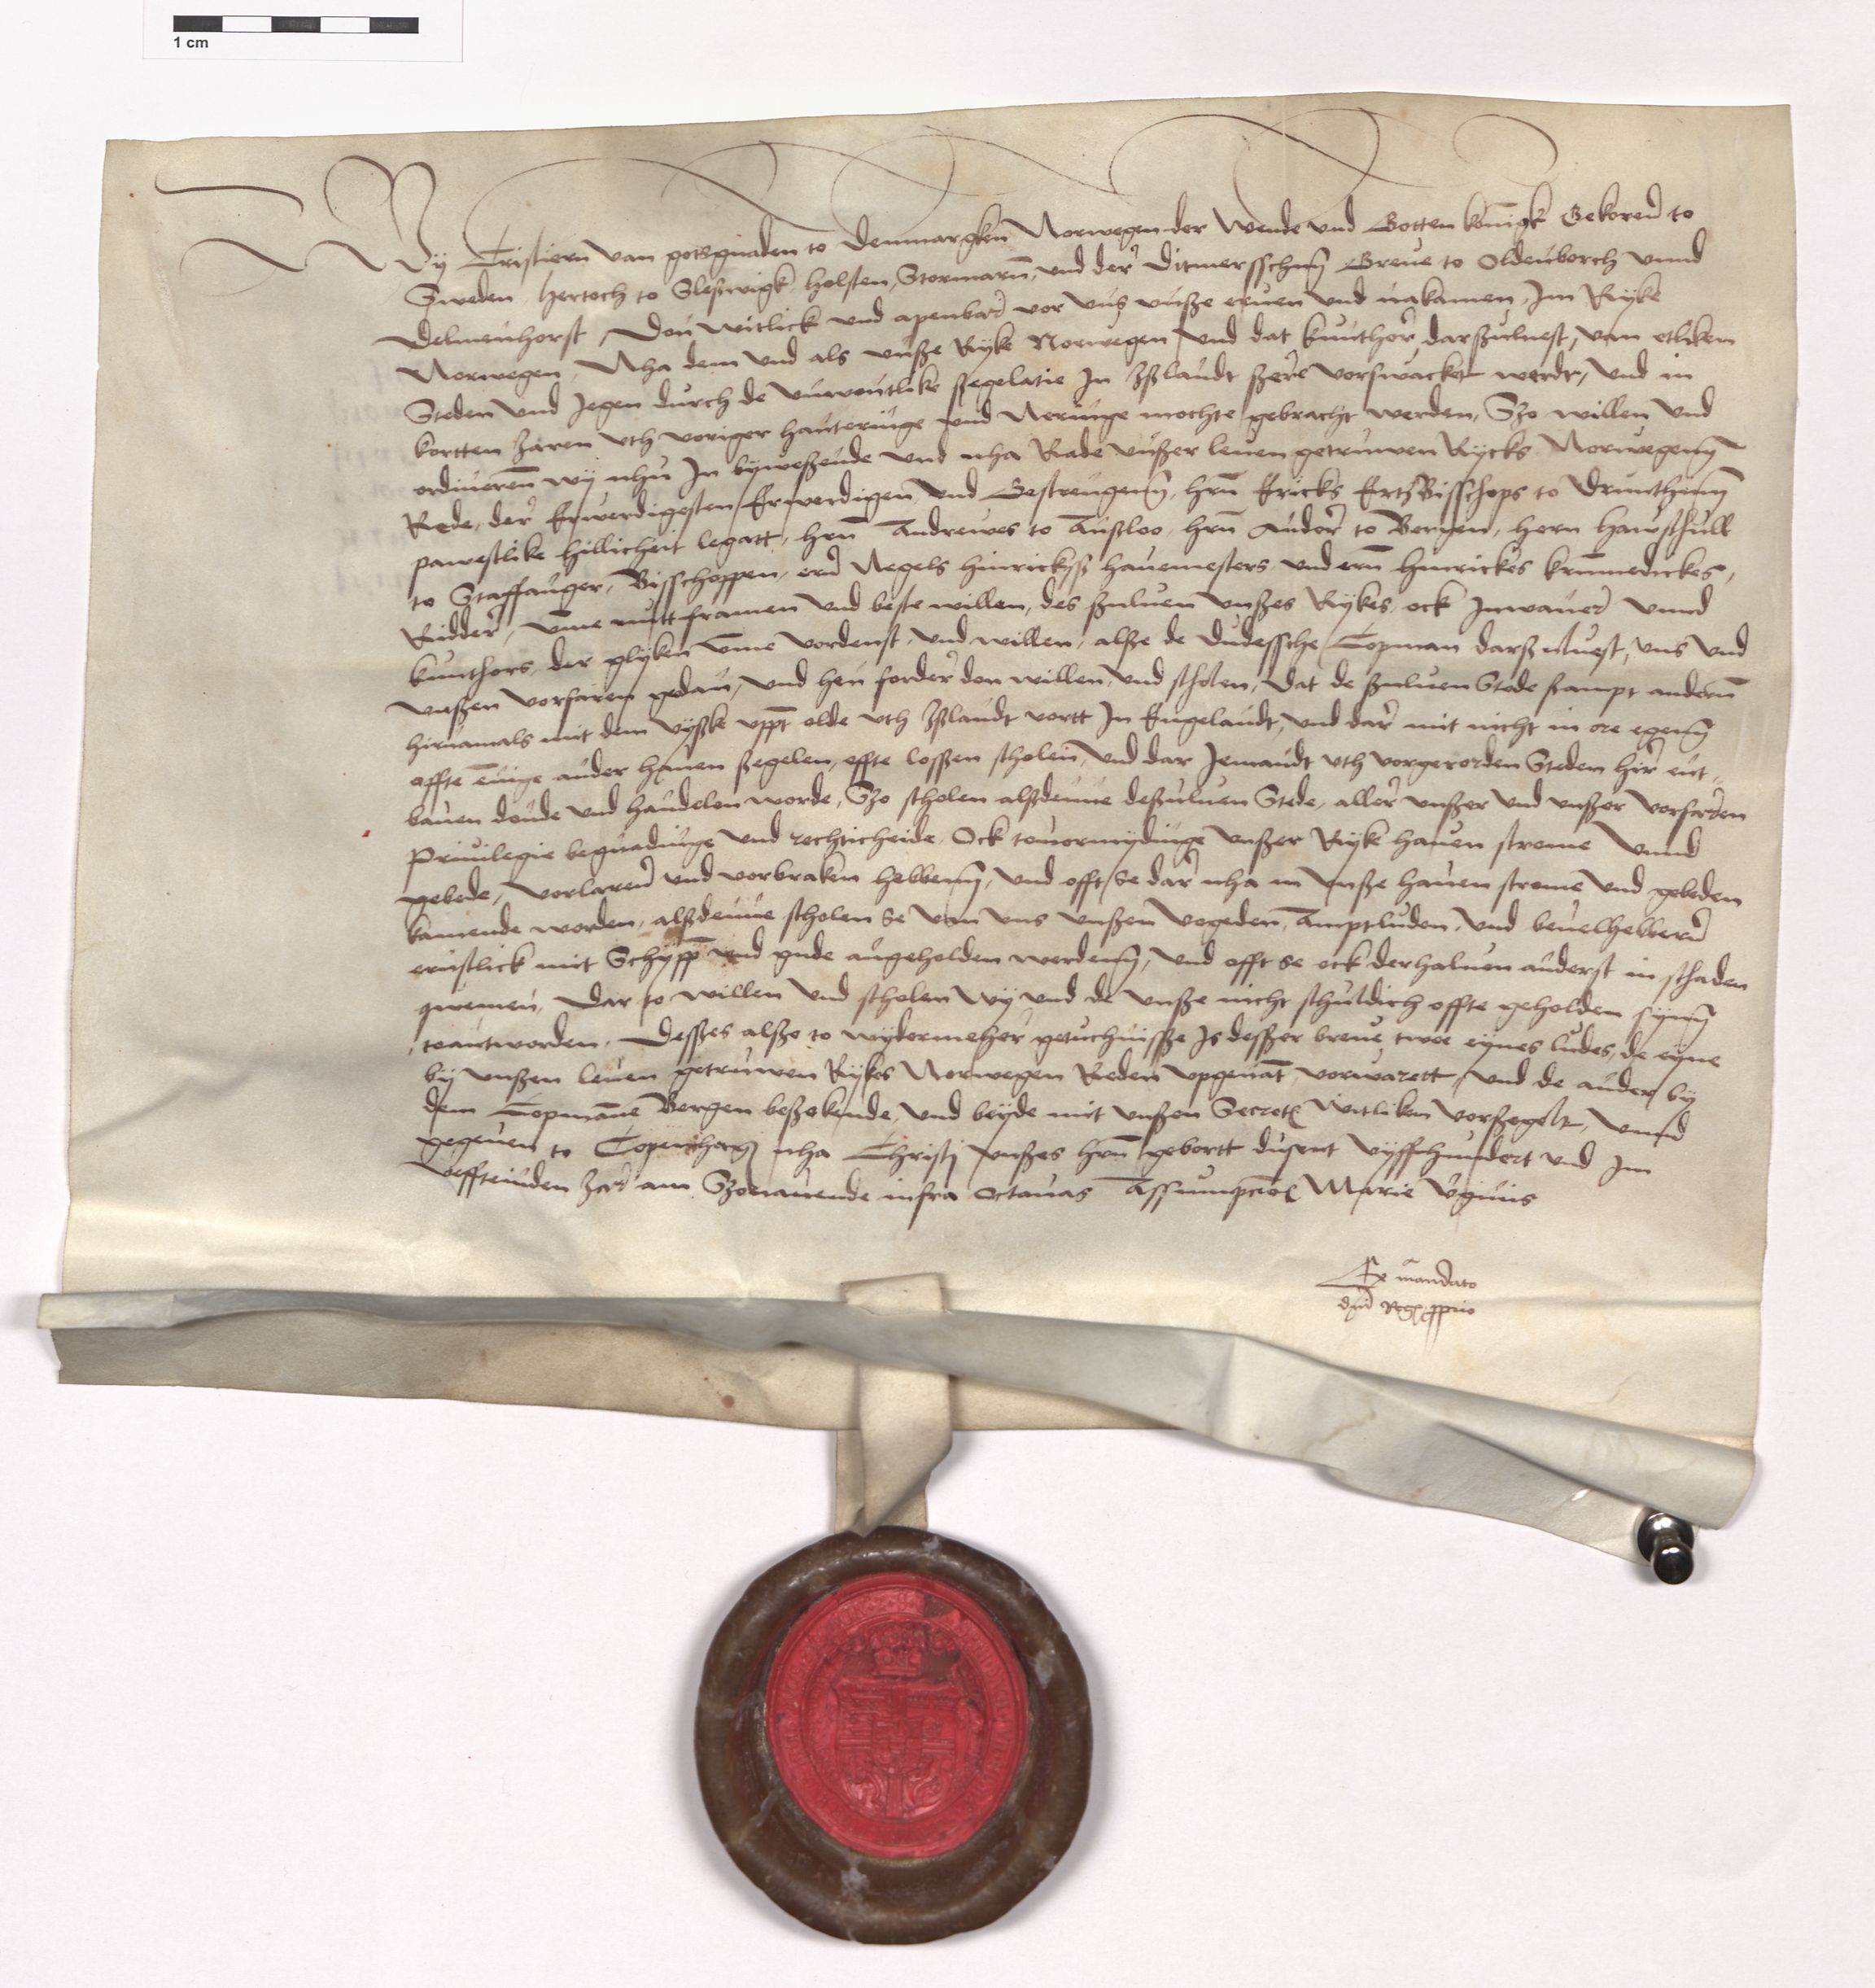 1 cm
Wy Cristiern van gotsgnaden to Denmargken Norwegen der Wende und Gotten konigk Gekoren to
Sweden hertoch to Sleßwigk holsten Stormarn und der Ditmersschen Greue to Oldenborch unnd
Delmenhorst, Don witlick und apenbar vor uns unße eruen und nakamen, Im Ryke
Norwegen, Nha dem und als unße Ryke Norwegen und dat kunthor darßuluest, van etliken
Steden und Jegen durch de unwontlike ßegelatie In Ißlandt ßere vorswacket werdt, und in
kortten Jaren uth voriger hanteringe und Neringe mochte gebracht werden, Szo willen und
ordineren wy nhu In byweßende und nha Rade unßer leuen getruwen Rycks Norwegen
Rede, der Erwerdigesten Erwerdigen und Gestrengen, hrn Ericks ErtsBisschops to Drunthem
pawestlike hillicheit legatt, hrn Andrewes to Anßloo, hrn Andor to Bergen, hern hawschull
to Staffanger, Bisschoppen, ern Negels hinrickß hauemesters und ern hinrickes krummedickes,
Ridder, vme nutt framen und beste willen, des ßuluen unßes Rykes, ock Inwaner unnd
kunthors, der glyken vme vordenst und willen, alße de Dudessche Copman darßuluest, uns und
unßen vorfaren gedan, und hen forder don willen, und scholen, Dat de ßuluen Stede ßampt andern
hirnamals mit dem vyßke uppt olde uth Ißlandt vortt In Engelandt, und dar mit nicht in ore egen
offte enige ander hauen ßegelen, offte loßßen scholen, und dar Jemandt uth vorgerorden Steden hir ent-
bauen donde und handelen worde, Szo scholen alßdenne deßuluen Stede, aller unßer und unßer vorfarden
Priuilegie begnadinge und rechticheide, Ock touormydinge unßer Ryke hauen strome unnd
gebede, vorlaren und vorbraken hebben, und offt se dar nha in unße hauen strome und gebeden
kamende worden, alßdenne scholen se van uns unßen vogeden, Amptluden, und beuelhebbern
ernstlick mit Schypp und gude angeholden werden, und offt se ock derhaluen anderst in schaden
quemen, Dar to willen und scholen wy und de unße nicht schuldich offte geholden syn
toantworden, Deßßes alßo to wydermeher getuchniße Is deßßer breue twee eynes ludes, de eyne
by unßen leuen getruwen Rykes Norwegen Reden upgenant vorwarett, und de ander by
dem Copmanne Bergen beßokende, und beyde mit unßen Secrete witliken vorßegelt, unnd
gegeuen to Copenhagen nha Christi unßes hrn gebortt dusent vyffhundert und Im
voffteinden Jar am Szonauende infra octauas Assumpcionis Marie virginis
Ex mandato
dni Regis proprio